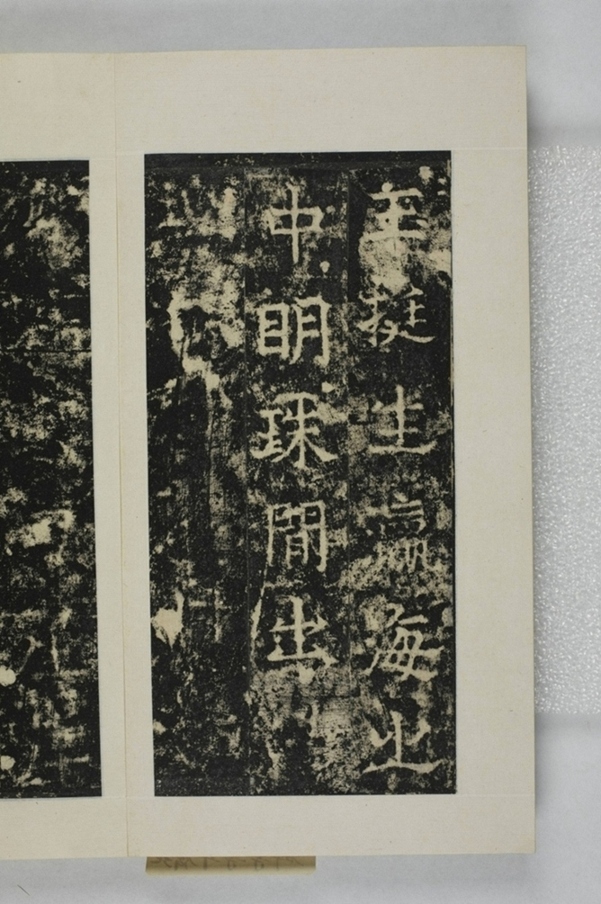 生嬴海之
中明珠間出